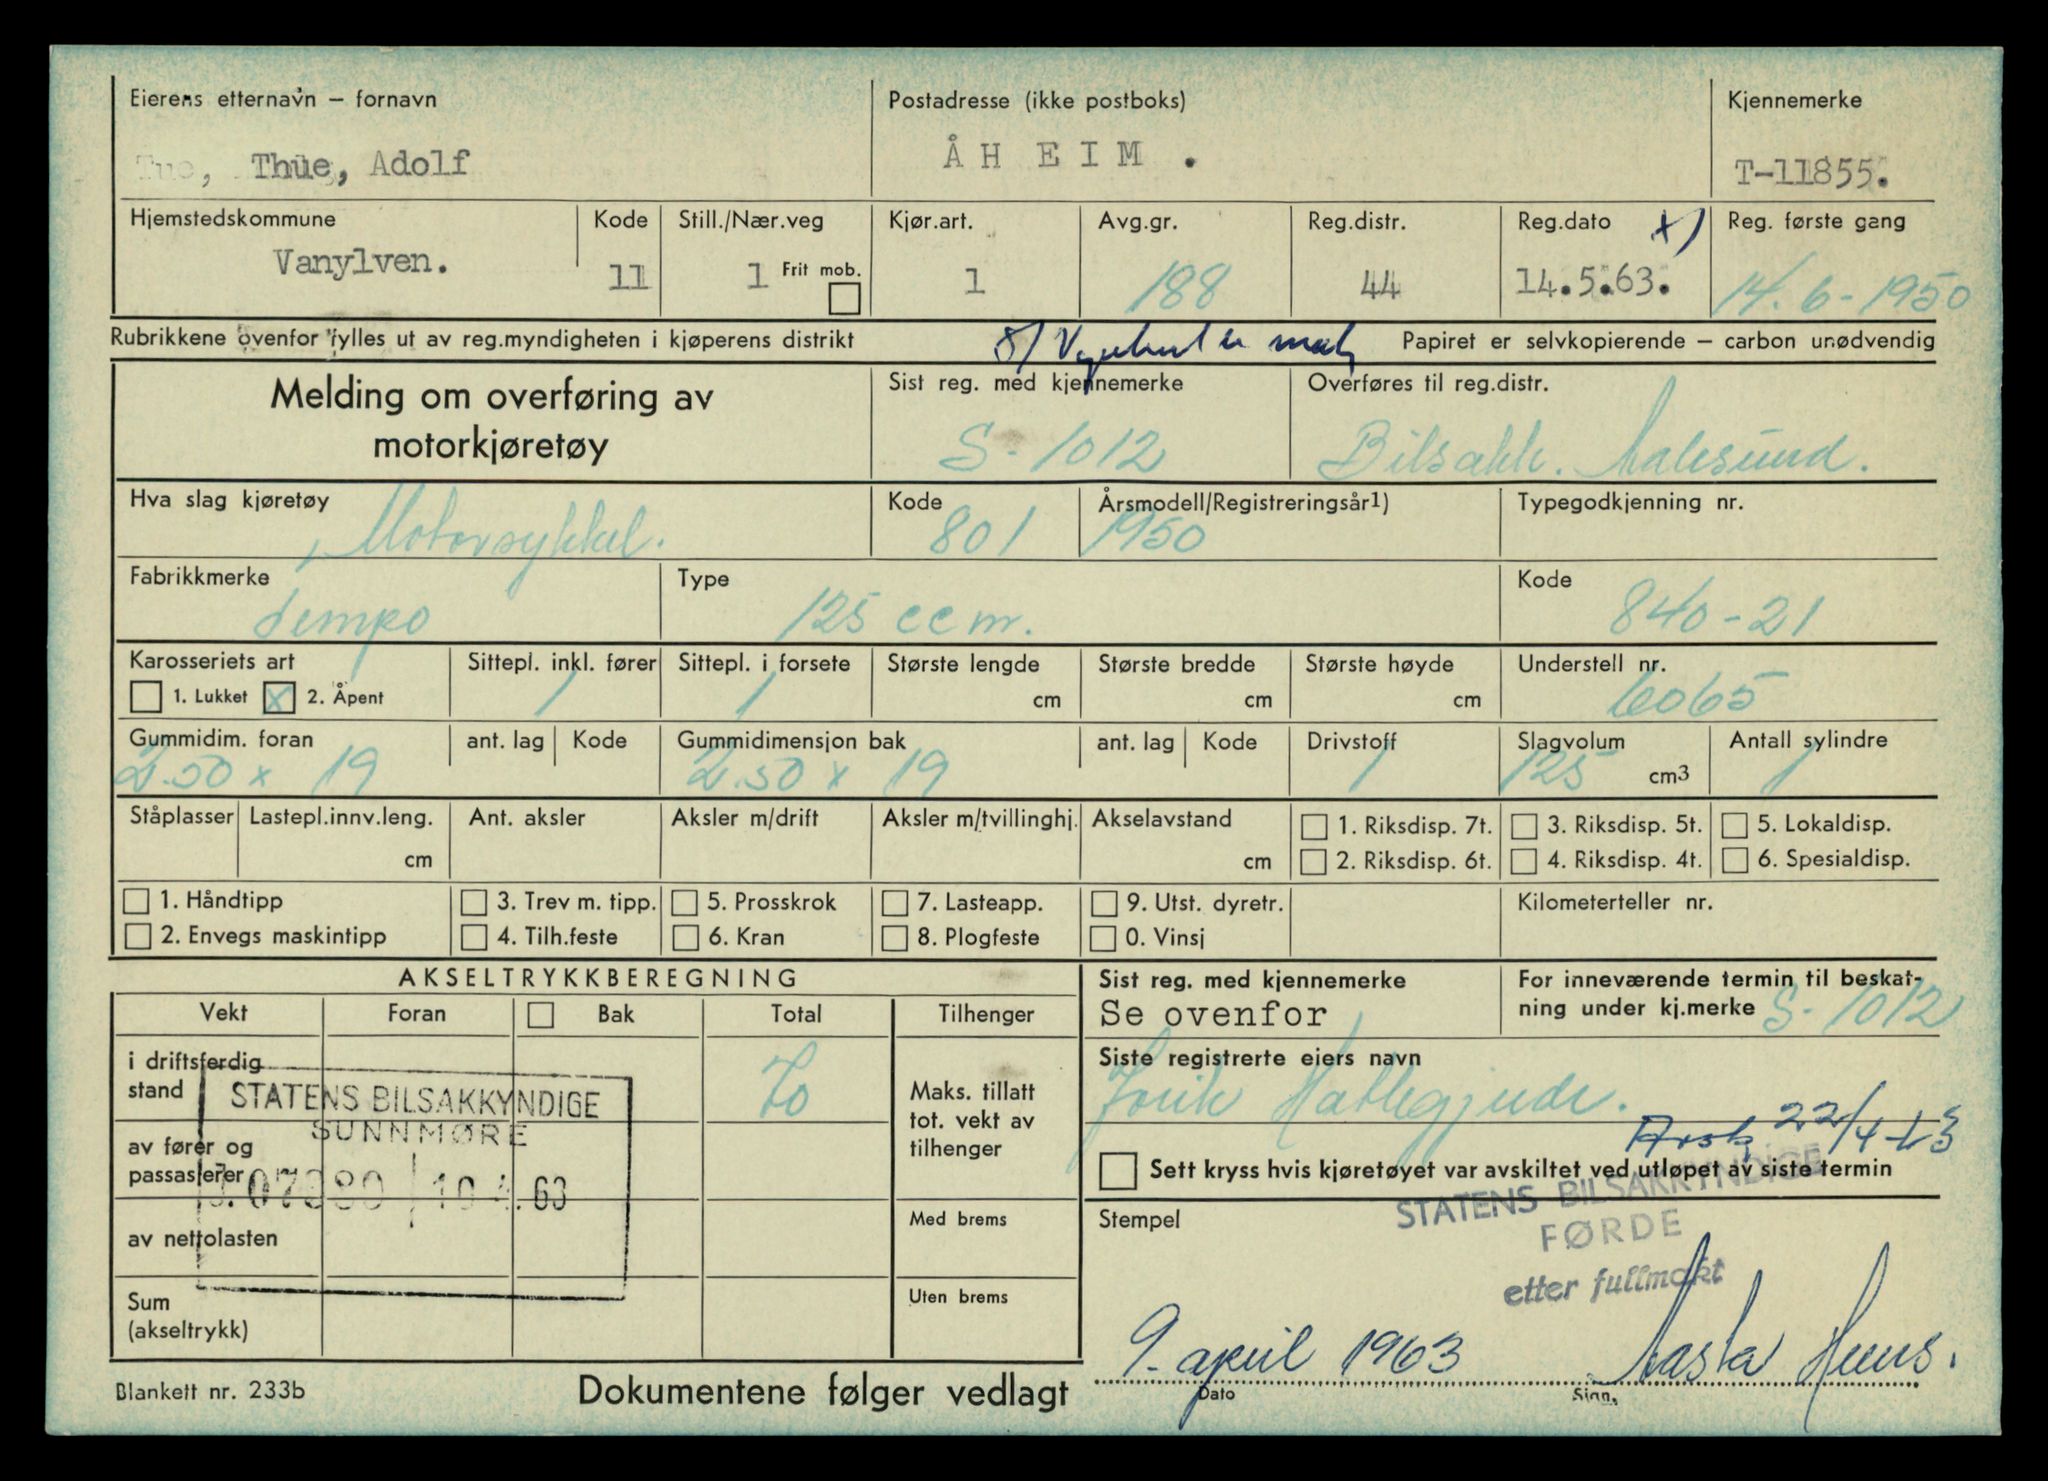 Eierens etternavn – fornavn
Postadresse (ikke postboks)
Kjennemerke
Tue, Thue, Adolf
ÅHEIM.
T-11855.
Hjemstedskommune
Kode
Still./Nær.veg
Kjør.art.
Avg.gr.
Reg.distr.
Reg.dato x)
Reg. første gang
Vanylven.
11
1
Frit mob.
1
188
44
14.5.63.
14.6-1950
Rubrikkene ovenfor fylles ut av reg.myndigheten i kjøperens distrikt
Papiret er selvkopierende – carbon unødvendig
Melding om overføring av
motorkjøretøy
Sist reg. med kjennemerke
Overføres til reg.distr.
S-1012
Bilsakk. Aalesund.
Hva slag kjøretøy
Kode
Årsmodell/Registreringsår1)
Typegodkjenning nr.
Motorsykkel.
801
1950
Fabrikkmerke
Type
Kode
Tempo
125 ccm.
840-21
Karosseriets art
Sittepl. inkl. fører
Sittepl. i forsete
Største lengde
Største bredde
Største høyde
Understell nr.
1. Lukket
x 2. Åpent
1
1
cm
cm
cm
6065
Gummidim. foran
ant. lag
Kode
Gummidimensjon bak
ant. lag
Kode
Drivstoff
Slagvolum
Antall sylindre
2.50 x 19
2.50 x 19
1
125 cm3
1
Ståplasser
Lastepl.innv.leng.
Ant. aksler
Aksler m/drift
Aksler m/tvillinghj.
Akselavstand
1. Riksdisp. 7t.
3. Riksdisp. 5t.
5. Lokaldisp.
cm
cm
2. Riksdisp. 6t.
4. Riksdisp. 4t.
6. Spesialdisp.
1. Håndtipp
3. Trev m. tipp.
5. Prosskrok
7. Lasteapp.
9. Utst. dyretr.
Kilometerteller nr.
2. Envegs maskintipp
4. Tilh.feste
6. Kran
8. Plogfeste
0. Vinsj
AKSELTRYKKBEREGNING
Sist reg. med kjennemerke
For inneværende termin til beskat-
Se ovenfor
ning under kj.merke S-1012
Vekt
Foran
Bak
Total
Tilhenger
i driftsferdig
stand
70
Maks. tillatt
tot. vekt av
tilhenger
Siste registrerte eiers navn
22/4-63
STATENS BILSAKKYNDIGE
SUNNMØRE
10 4. 63
av fører og
passasjerer
Sett kryss hvis kjøretøyet var avskiltet ved utløpet av siste termin
av nettolasten
Med brems
Stempel
STATENS BILSAKKYNDIGE
FØRDE
etter fullmakt
Sum
(akseltrykk)
Uten brems
9. april 1963
Aasta
Dato
Sign.
Blankett nr. 233b
Dokumentene følger vedlagt